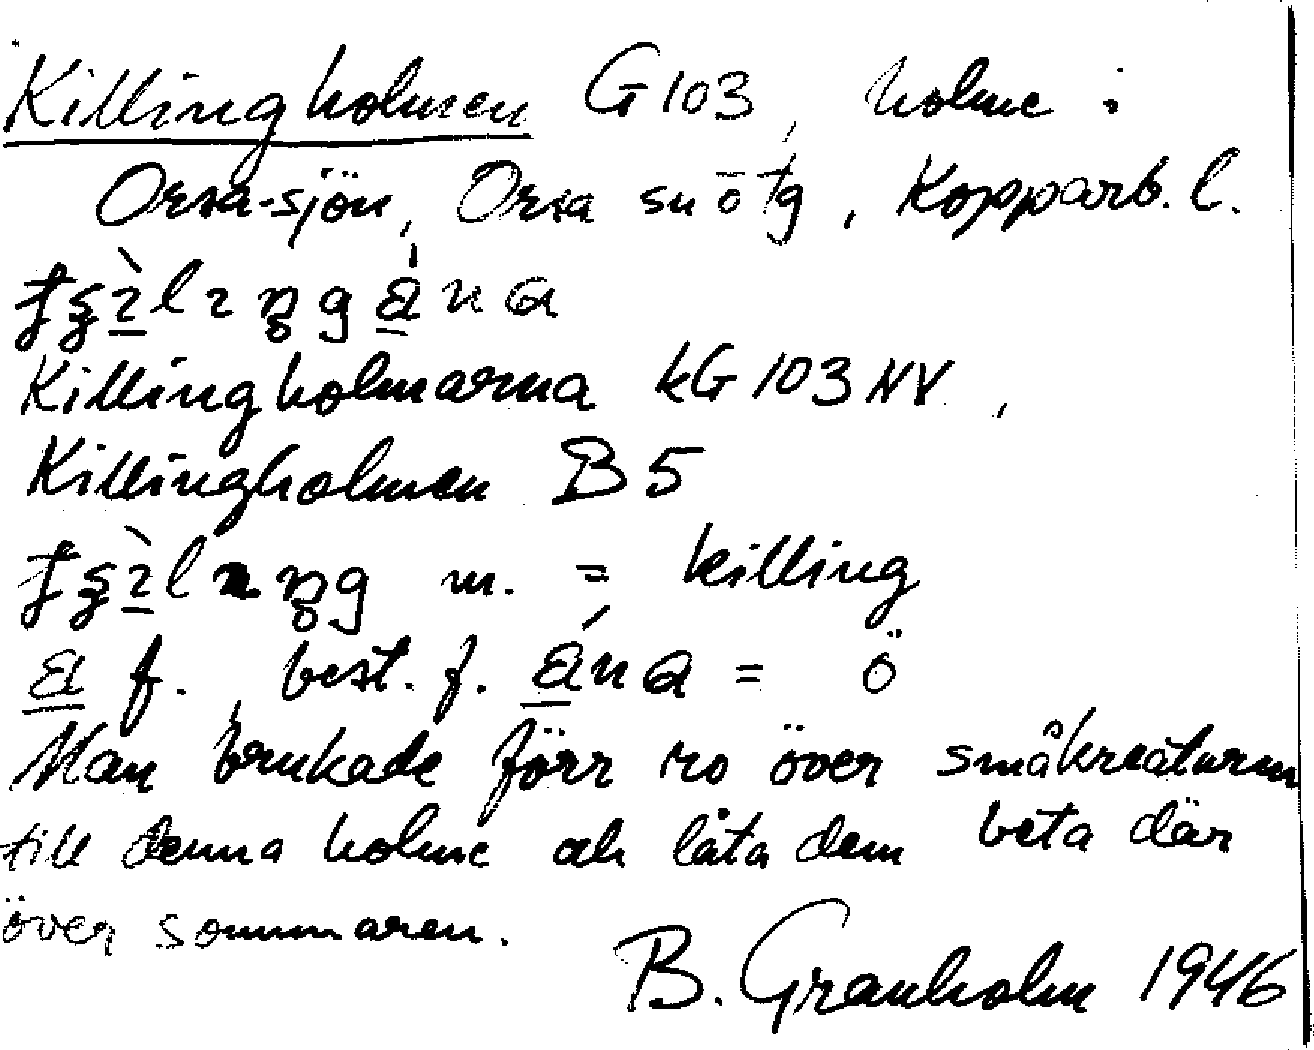 Killingholmen G 103, holme i
Orsa-sjön, Orsa sn o tg, Kopparb. l.
Killingholmarna kG 103 NV,
Killingholmen B 5
m. = killing
f., best. f. = ö
Man brukade förr ro över småkreaturen
till denna holme och låta dem beta där
över sommaren.
B. Granholm 1946